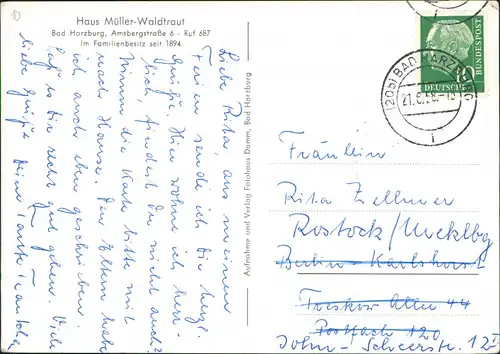 10
Haus Müller-Waldtraut
Bad Harzburg, Amsbergstraße 6 - Ruf 687
Im Familienbesitz seit 1894
Liebe Rita, aus meinen
Ferien sende ich Dir herzl.
Grüße. Hier wohne ich herr-
lich, findest Du nicht auch?
Nimm die Karte bitte mit
nach Hause. Den Eltern habe
ich auch eben geschrieben.
Laß es Dir recht gut gehen. Viele
liebe Grüße Deine Tante
Aufnahme und Verlag Fotohaus Damm, Bad Harzburg
DEUTSCHE
BUNDESPOST
(20b) BAD HARZBURG
Fräulein
Rita Zellmer
Rostock/Mecklbg
Berlin-Karlshorst
Treskow Allee 44
Postfach 120
John-Scheerstr. 12